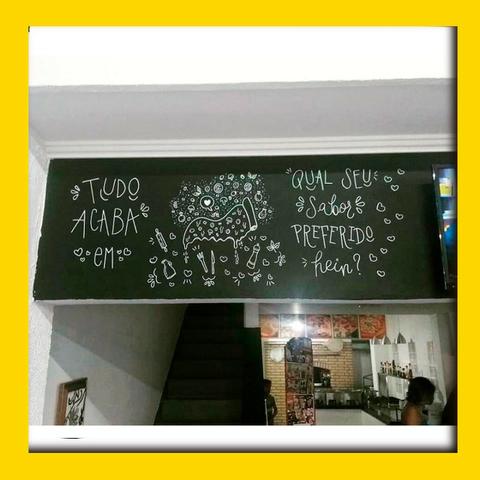 TUDO
ACABA
EM
QUAL SEU
Sabor
PREFERIDO
hein?